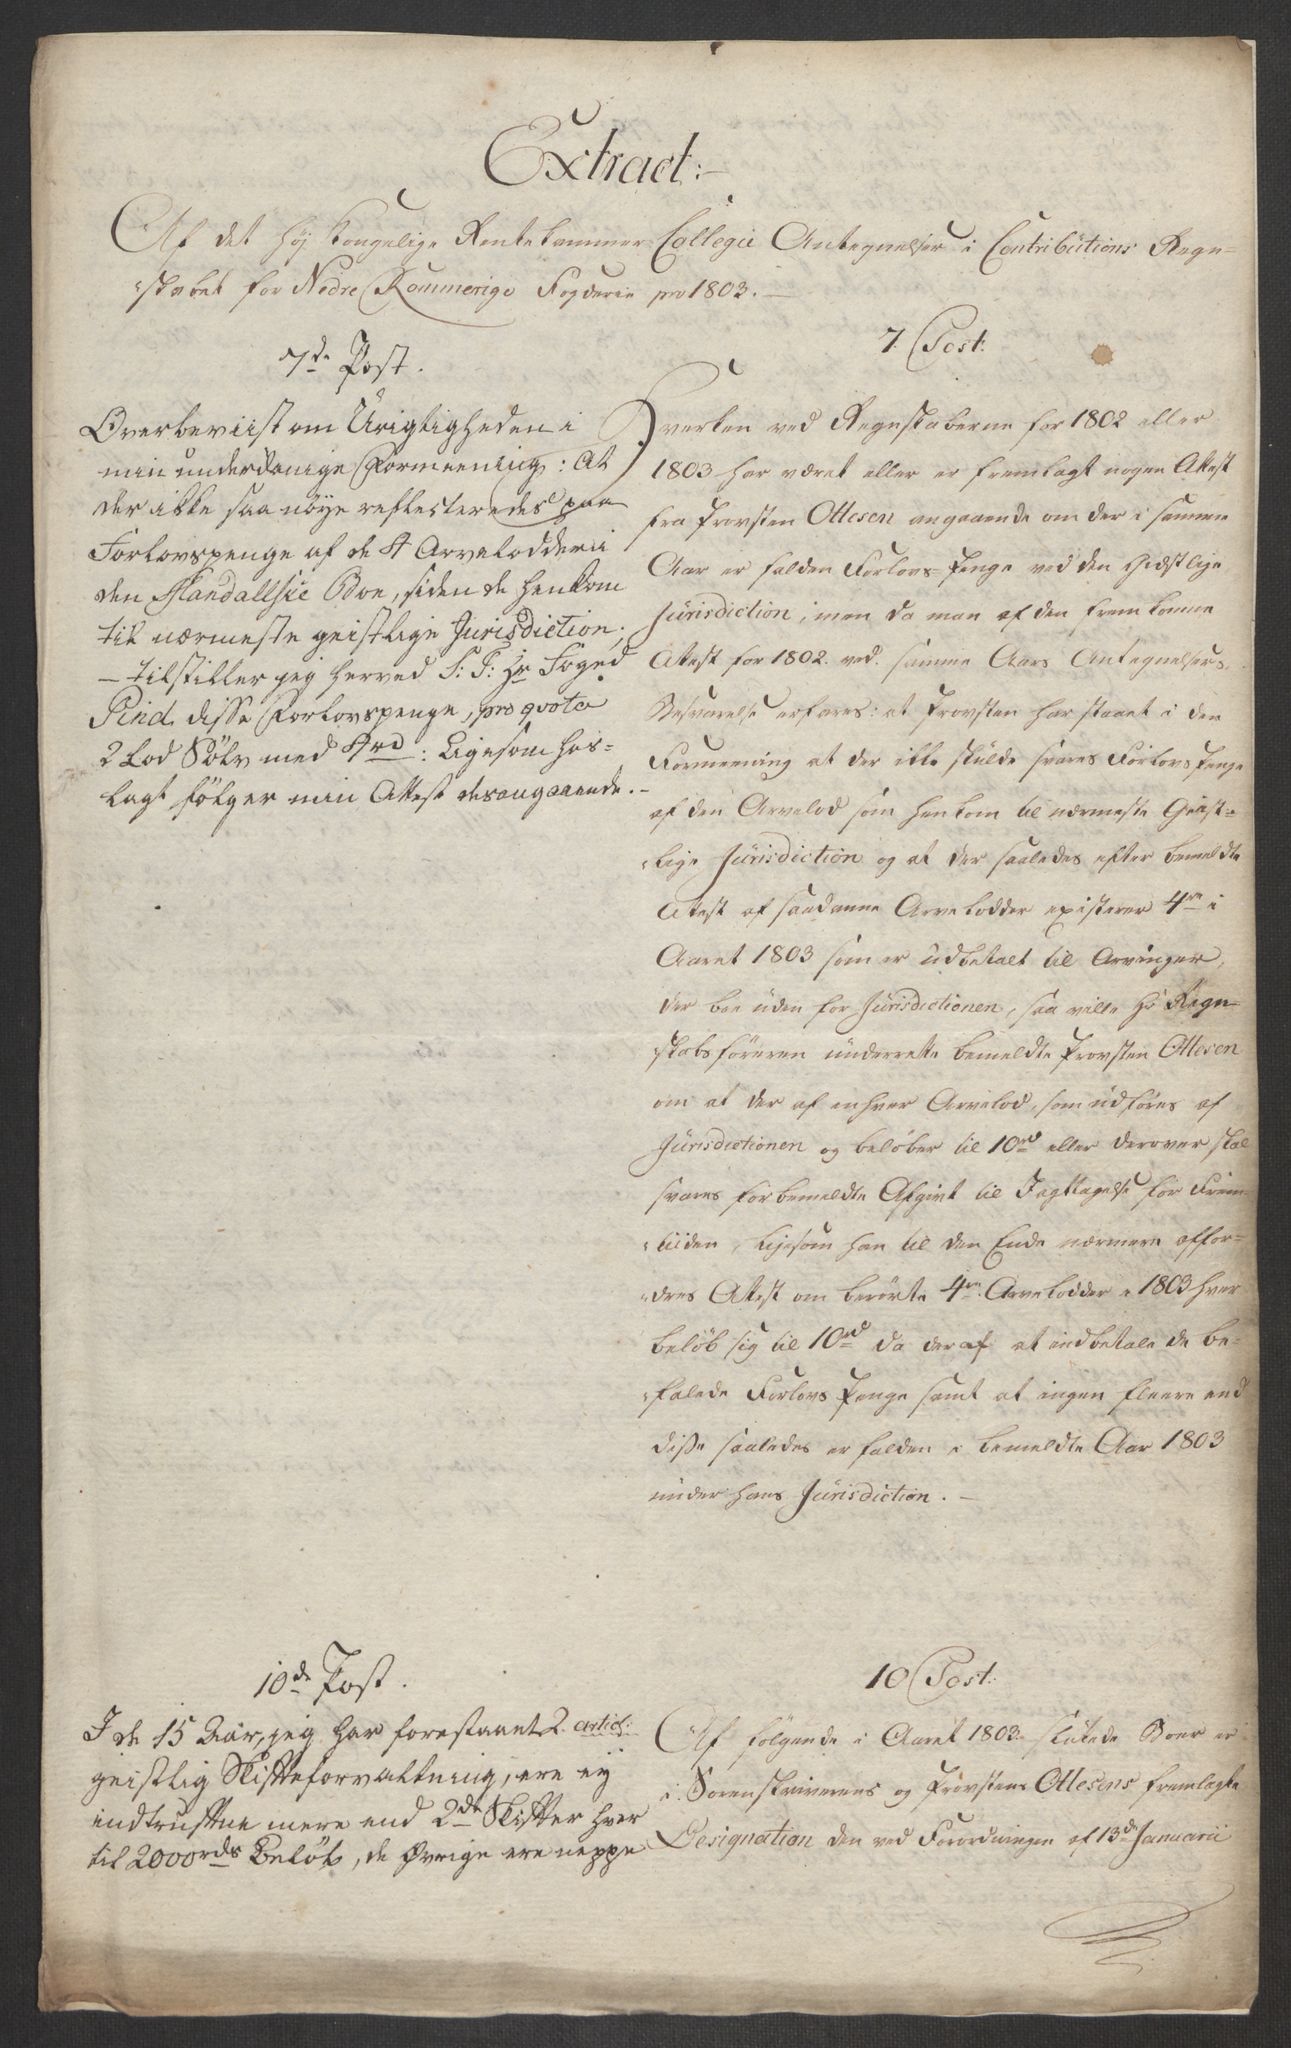 Extract:
Af det høj Kongelige Rentekammer Collegii Antegnelser i Contributions Regn-
skabet for Nedre Rommerige Fogderie pro 1803.
7de Post.
Overbeviist om Urigtigheden i
min underdanige Formeening: At
der ikke saa nöye reflecteredes paa
Forlovspenge af de 4 Arvelodder i
den Flandallske Boe, siden de henkom
til nærmeste geistlige Jurisdiction;
– tilstiller jeg herved S: T: Hr Foged
Pind disse Forlovspenge, pro qvota
2 Lod Sölv med 4rd: Ligesom hos-
lagt fölger min Attest desangaaende.
7. Post:
Hverken ved Regnskaberne for 1802 eller
1803 har været eller er fremlagt nogen Attest
fra Provsten Ottesen angaaende om der i samme
Aar er falden Forlovs Penge ved den Gidstlige
Jurisdiction, men da man af den fremkomne
Attest for 1802. ved. samme Aars Antegnelsers
Besvarelse erfares: at Provsten har staaet i den
Formeening at der ikke skulde svares Forlovs Penge
af den Arvelod som henkom til nærmeste Geist-
lige Jurisdiction og at der saaledes efter bemeldte
Attest af saadanne Arvelodder existerer 4re i
Aaret 1803 som er udbetalt til Arvinger,
der boe uden for Jurisdictionen, saa ville Hr Regn-
skabsföreren underrette bemeldte Provsten Ottesen
om at der af enhver Arvelod, som udföres af
Jurisdictionen og belöber til 10rd eller derover skal
svares forbemeldte Afgivt til Iagttagelse for Frem-
tiiden, ligesom han til den Ende nærmere affor-
dres Attest om berörte 4re Arvelodder i 1803 hver
belöb sig til 10rd da deraf at indbetale de be-
falede Forlovs Penge samt at ingen fleere end
disse saaledes er falden i bemeldte Aar 1803
under hans Jurisdiction. –
10de Post.
I de 15 Aar, jeg har forestaaet 2. articl:
geistlig Skifteforvaltning, ere ey
indtruffne mere end 2de Skifter hver
til 2000rds Belöb, de Øvrige ere neppe
10 Post:
Af fölgende i Aaret 1803 sluttede Boer er
i Sorenskriverens og Provstens Ottesens fremlagte
Designation den ved Forordningen af 13de Januarii